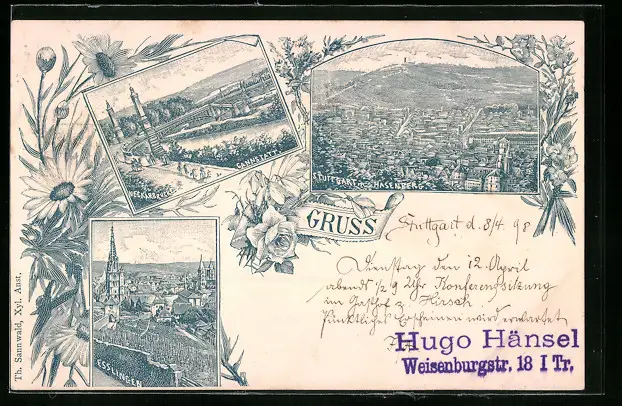 NECKARBRÜCKE
CANNSTATT.
STUTTGART v. HASENBERG.
GRUSS
Stuttgart d. 8/4. 98
Dienstag den 12. April
abends 1/2 9 Uhr Konferenzsitzung
im Gasthof z. Hirsch
Pünktliches Erscheinen wird erwartet
Hugo Hänsel
Weisenburgstr. 18 I Tr.
ESSLINGEN
Th. Sannwald, Xyl. Anst.